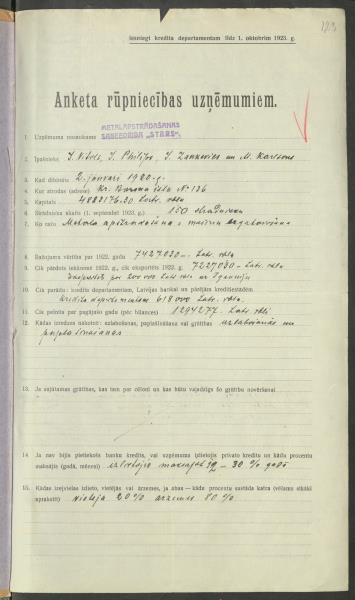 Iesniegt kredita departamentam līdz 1. oktobrim 1923. g.
Anketa rūpniecības uzņēmumiem.
1. Uzņēmuma nosaukums METALAPSTRĀDAŠANAS
SABEEDRĪBA „STARS"
2. Īpašnieks J. Vītols, J. Philips, J. Zankevics un M. Karlsons
3. Kad dibināts 2. janvari 1920. g.
4. Kur atrodas (adrese) Kr. Barona iela № 136
5. Kapitals 4882176.20 Latv. rbļu
6. Strādnieku skaits (1. septembri 1923. g.) 150 strādnieku
7. Ko ražo Metala apstrādašana
8. Ražojumu vērtība par 1922. gadu 7427030.– Latv. rbļu
9. Cik pārdots iekšzemē 1922. g., cik eksportēts 1922. g. 7227030– Latv. rbļu
par 200000 Latv. rbļu uz
10. Cik parādu: kredita departamentam, Latvijas bankai un pārējām kreditiestādēm
Kredita departamentam 618000 Latv. rbļu.
11. Cik peļņas par pagājušo gadu (pēc bilances) 1294277. Latv. rbļi
12. Kādas izredzes nākotnē: uzlabošanās, paplašināšana vai grūtības uzlabošanās un
paplašināšanas
13. Ja sajūtamas grūtības, kas tam par cēloni un kas būtu vajadzīgs šo grūtību novēršanai
14. Ja nav bijis pietiekošs banku kredits, vai uzņēmums izlietojis privato kreditu un kādu procentu
maksājis (gadā, mēnesī) izlietojis maksājot – 30 % gadā
15. Kādas izejvielas izlieto, vietējās vai ārzemes, ja abas – kādu procentu sastāda katra (vēlams sīkāki
aprakstīt) vietēja 20% ārzemes 80%